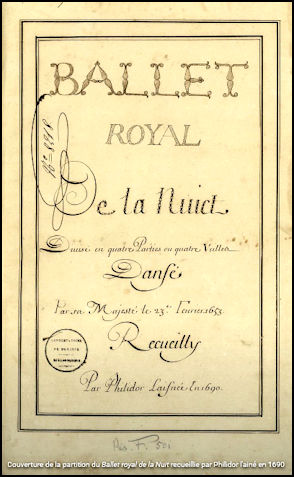 BALLET
ROYAL
De la Nuict
Divisé en quatre Parties ou quatre Veilles
Dansé
Par sa Majesté le 23.e Fevrier 1653.
Recueilly
Par Philidor Laisnée En 1690.
Res. F. 501
Couverture de la partition du Ballet royal de la Nuit recueillie par Philidor l'ainé en 1690